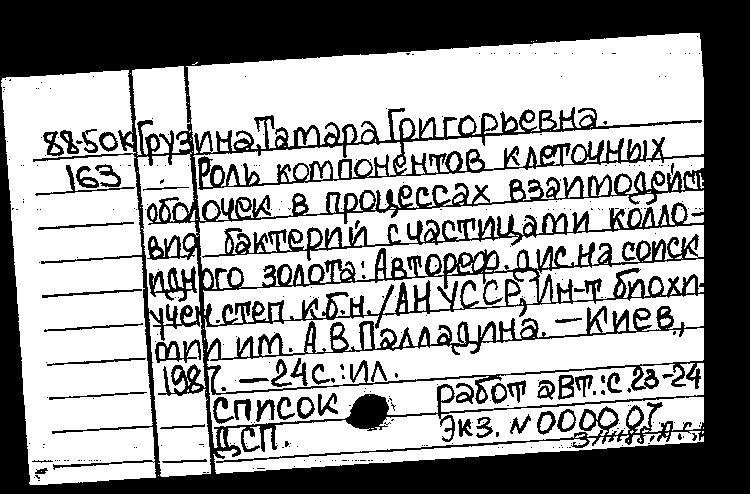 88-50К Грузина, Тамара Григорьевна.
163 Роль компонентов клеточных
оболочек в процессах взаимодейст
вия бактерий с частицами колло-
идного золота: Автореф. дис. на соиск
учен. степ. к.б.н. / АН УССР, Ин-т биохи-
мии им. А.В. Палладина. — Киев,
1987. — 24 с.: ил.
Список работ авт.: с. 23-24
ДСП. Экз. N 000007